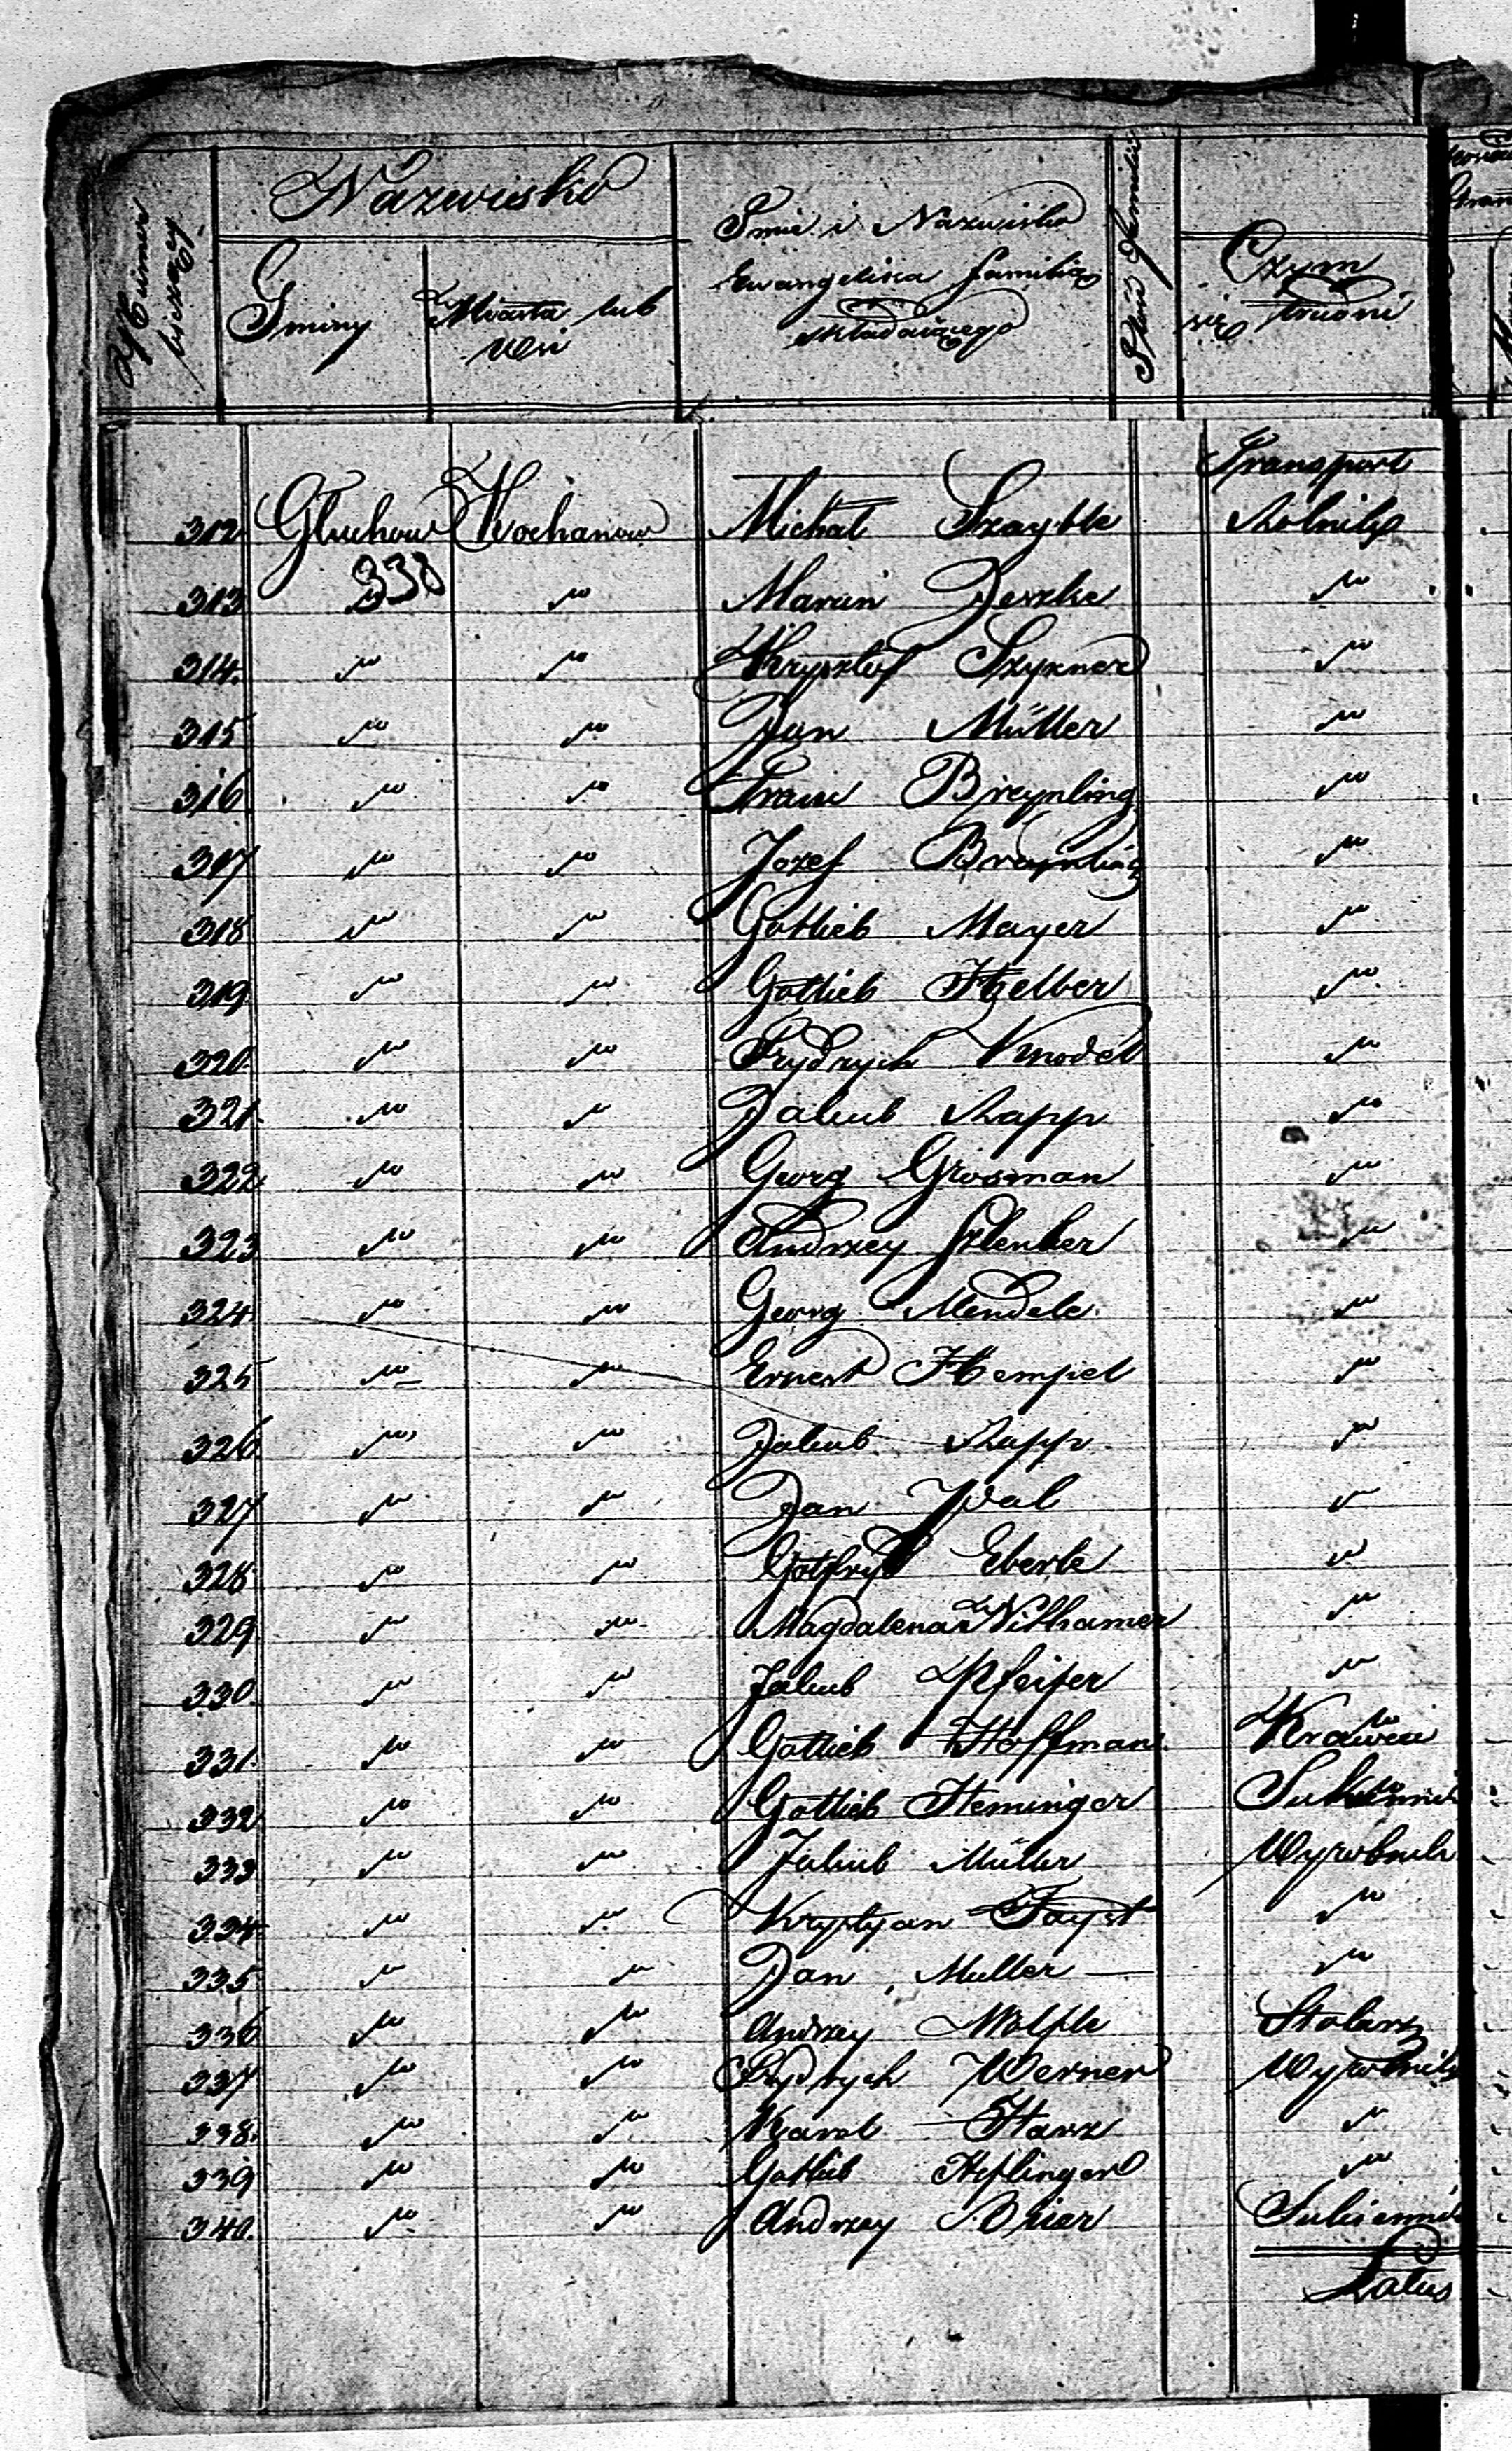 Nazwisko
Numer bieżący
Gminy
Miasta lub wsi
Imie i Nazwisko
Ewangelika familią
składaiącego
Stan familii
Czym
się trudni
Transport
312 Głuchow Kochanow Michał Szayble Rolnik
338
313 " " Marcin Deszke "
314. " " Krysztof Szyzner "
315 " " Jan Müller "
316 " " Franc Breynling "
317 " " Jozef Breynling "
318 " " Gotlieb Mayer "
319 " " Gotlieb Helber "
320 " " Frydrych Knodel "
321. " " Jakub Rapp "
322 " " Georg Grosman "
323 " " Andrzey Szlenker "
324. " " Georg Mendele "
325 " " Ernest Hempel "
326. " " Jakub Rapp "
327 " " Jan Wal "
328 " " Gotfryd Eberle "
329 " " Magdalena Withamer "
330. " " Jakub Pfeifer "
331. " " Gotlieb Hoffman Krawiec
332 " " Gotlieb Heminger Sukiennik
333 " " Jakub Müller Wyrobnik
334 " " Krystyan Fayst "
335 " " Jan Muller "
336 " " Andrzey Wolfle Stolarz
337 " " Frydrych Werner Wyrobnik
338. " " Karol Harz "
339 " " Gotlieb Heflinger "
340. " " Andrzey Bier Sukiennik
Latus